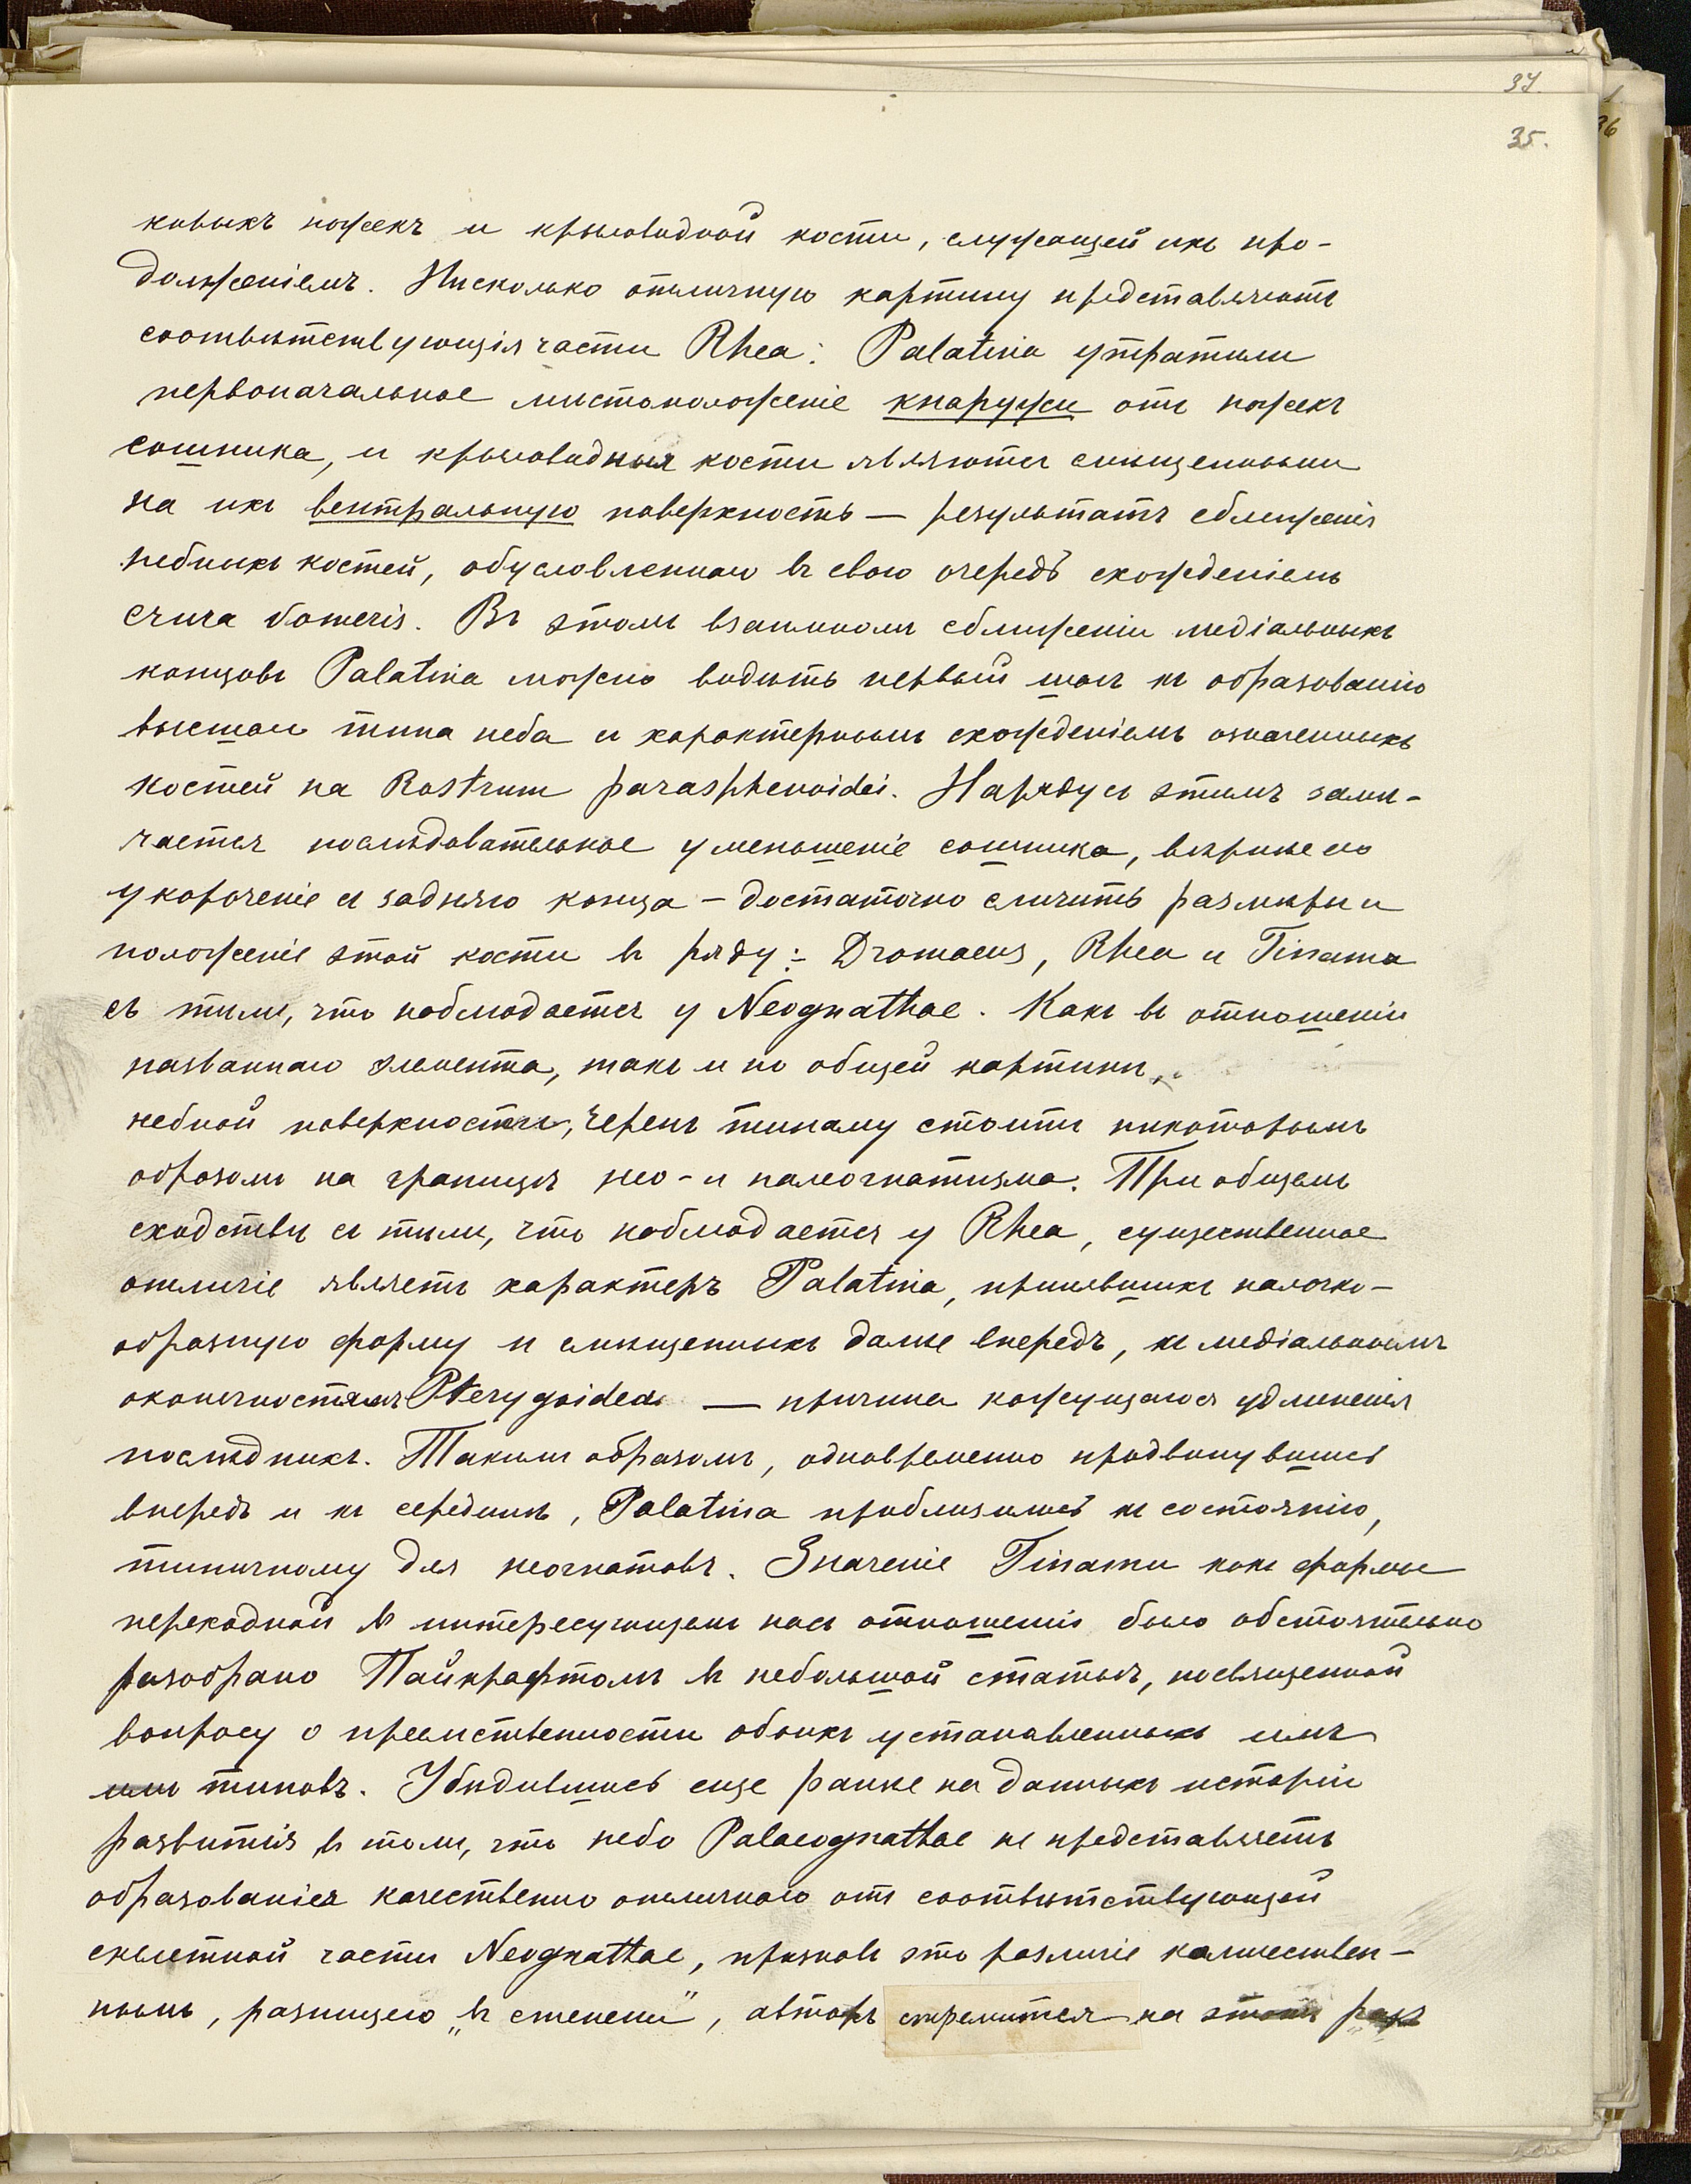 37.
35.
36
ковыхъ ножекъ и крыловидной кости, служащей ихъ про-
долженіемъ. Нѣсколько отличную картину представляютъ
соотвѣтствующія части Rhea: Palatina утратили
первоначальное мѣстоположеніе кнаружи отъ ножекъ
сошника, и крыловидныя кости являются смѣщенными
на ихъ вентральную поверхность — результатъ сближенія
небныхъ костей, обусловленнаго въ свою очередь схожденіемъ
crura vomeris. Въ этомъ взаимномъ сближеніи медіальныхъ
концовъ Palatina можно видѣть первый шагъ къ образованію
высшаго типа неба съ характернымъ схожденіемъ означенныхъ
костей на Rostrum parasphenoidei. Наряду съ этимъ замѣ-
чается послѣдовательное уменьшеніе сошника, вѣрнѣе его
укороченіе съ задняго конца — достаточно сличить размѣры и
положеніе этой кости въ ряду: Dromaeus, Rhea и Tinamu
съ тѣмъ, что наблюдается у Neognathae. Какъ въ отношеніи
названнаго элемента, такъ и по общей картинѣ
небной поверхности, черепъ тинаму стоитъ нѣкоторымъ
образомъ на границѣ нео- и палеогнатизма. При общемъ
сходствѣ съ тѣмъ, что наблюдается у Rhea, существенное
отличіе являетъ характеръ Palatina, принявшихъ палочко-
образную форму и смѣщенныхъ далѣе впередъ, къ медіальнымъ
оконечностямъ Pterygoidea — причина кажущагося удлиненія
послѣднихъ. Такимъ образомъ, одновременно продвинувшись
впередъ и къ серединѣ, Palatina приблизились къ состоянію,
типичному для неогнатовъ. Значеніе Tinamu какъ формы
переходной въ интересующемъ насъ отношеніи было обстоятельно
разобрано Пайкрафтомъ въ небольшой статьѣ, посвященной
вопросу о преемственности обоихъ установленныхъ имъ
типовъ. Убѣдившись еще ранѣе на данныхъ исторіи
развитія въ томъ, что небо Palaeognathae не представляетъ
образованія качественно отличнаго отъ соотвѣтствующей
скелетной части Neognathae, признавъ это различіе количествен-
нымъ, разницею „въ степени", авторъ стремится на этотъ разъ